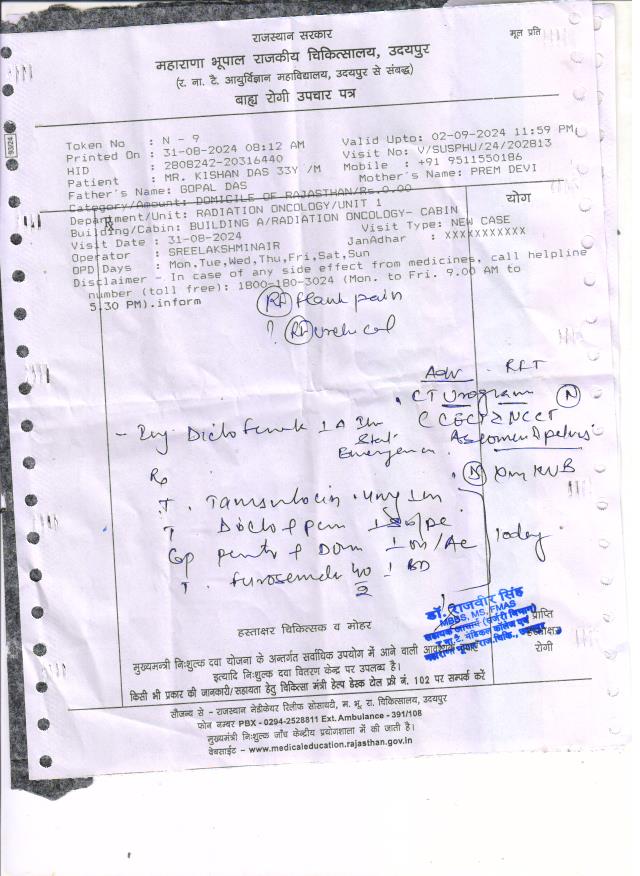 राजस्थान सरकार
मूल प्रति
महाराणा भूपाल राजकीय चिकित्सालय, उदयपुर
(र. ना. टै. आयुर्विज्ञान महाविद्यालय, उदयपुर से संबद्ध)
बाह्य रोगी उपचार पत्र
93/24
Token No : N - 9
Valid Upto: 02-09-2024 11:59 PM
Printed On : 31-08-2024 08:12 AM
Visit No: V/SUSPHU/24/202813
HID : 2808242-20316440
Mobile : +91 9511550186
Patient : MR. KISHAN DAS 33Y /M
Mother's Name: PREM DEVI
Father's Name: GOPAL DAS
Category/Amount: DOMICILE OF RAJASTHAN/Rs.0.00
योग
Department/Unit: RADIATION ONCOLOGY/UNIT 1
Building/Cabin: BUILDING A/RADIATION ONCOLOGY- CABIN
Visit Date : 31-08-2024
Visit Type: NEW CASE
Operator : SREELAKSHMINAIR
JanAdhar : XXXXXXXXXXX
OPD Days : Mon,Tue,Wed,Thu,Fri,Sat,Sun
Disclaimer - In case of any side effect from medicines, call helpline
number (toll free): 1800-180-3024 (Mon. to Fri. 9.00 AM to
5.30 PM).inform
Rt flank pain
? Rt
Adv RFT
CT Urogram N
NCCT
Inj Diclofenac
Stat
Emergency
N KUB
T. Tamsulocin
T
Cap
Today
T. 40 1 BD
डॉ. राजवीर सिंह
MBBS, MS, FMAS
हस्ताक्षर चिकित्सक व मोहर
प्राप्ति
हस्ताक्षर
रोगी
मुख्यमन्त्री निःशुल्क दवा योजना के अन्तर्गत सर्वाधिक उपयोग में आने वाली
इत्यादि निःशुल्क दवा वितरण केन्द्र पर उपलब्ध है।
किसी भी प्रकार की जानकारी/सहायता हेतु चिकित्सा मंत्री हेल्प डेस्क टोल फ्री नं. 102 पर सम्पर्क करें
सौजन्य से - राजस्थान मेडीकेयर रिलीफ सोसायटी, म. भू. रा. चिकित्सालय, उदयपुर
फोन नम्बर PBX - 0294-2528811 Ext. Ambulance - 391/108
मुख्यमंत्री निःशुल्क जाँच केन्द्रीय प्रयोगशाला में की जाती है।
वेबसाईट - www.medicaleducation.rajasthan.gov.in